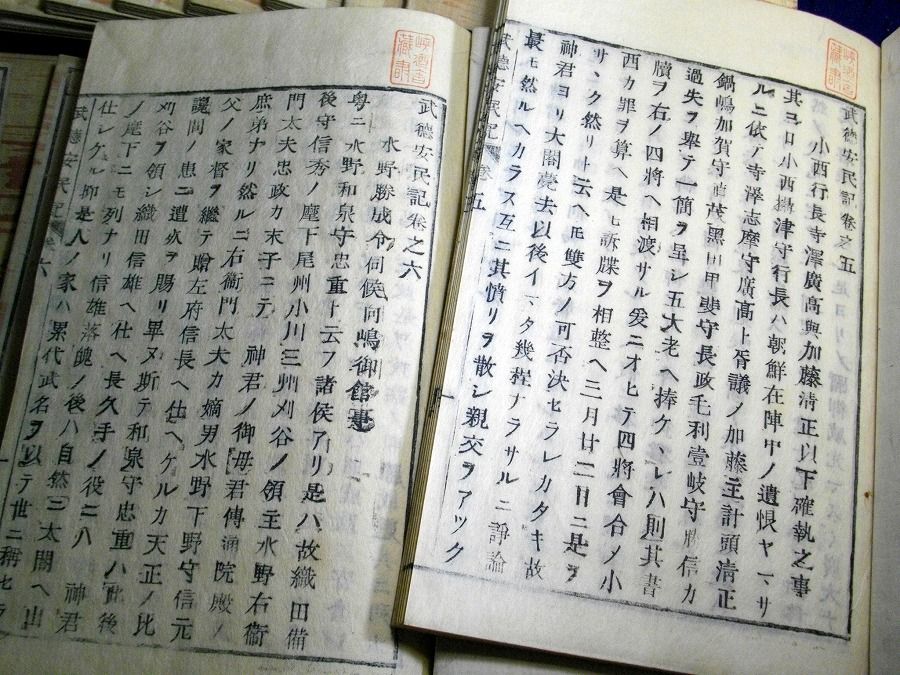 峡酒舎藏書
武德安民記卷之五
小西行長寺澤廣高與加藤清正以下確執之事
其コロ小西攝津守行長ハ朝鮮在陣中ノ遺恨ヤマサ
ルニ依テ寺澤志摩守廣高ト胥議ノ加藤主計頭清正
鍋嶋加賀守直茂黑田甲斐守長政毛利壹岐守勝信カ
過失ヲ舉テ一簡ヲ呈シ五大老ヘ捧ケヽレハ則其書
牘ヲ右ノ四將ヘ相渡サル爰ニオヒテ四將會合メ小
西カ罪ヲ算ヘ是モ訴牒ヲ相整ヘ三月廿二日ニ是ヲ
サヽク然リト云ヘ𪜈雙方ノ可否決セラレカタキ故
神君ヨリ大閤薨去以後イマタ幾程ナラサルニ諍論
最モ然ルヘカラス互ニ其憤リヲ散シ親交ヲアツク
武德安民記 卷五 一
藏書
武德安民記卷之六
水野勝成令伺候向嶋御館事
粤ニ水野和泉守忠重ト云フ諸侯アリ是ハ故織田備
後守信秀ノ麾下尾州小川三州刈谷ノ領主水野右衞
門太夫忠政カ末子ニテ 神君ノ御母君傳通院殿ノ
庶弟ナリ然ルニ右衞門太夫カ嫡男水野下野守信元
父ノ家督ヲ繼テ贈左府信長ヘ仕ヘケルカ天正ノ比
讒間ノ患ニ遭
刈谷ヲ領シ織田信雄ヘ仕ヘ長久手ノ役ニハ 神君
ノ麾下ニモ列ナリ信雄落魄ノ後ハ自然ニ太閤ヘ出
仕シケル抑是人ノ家ハ累代武名ヲ以テ世ニ稱セラ
武德安民記 卷六 一